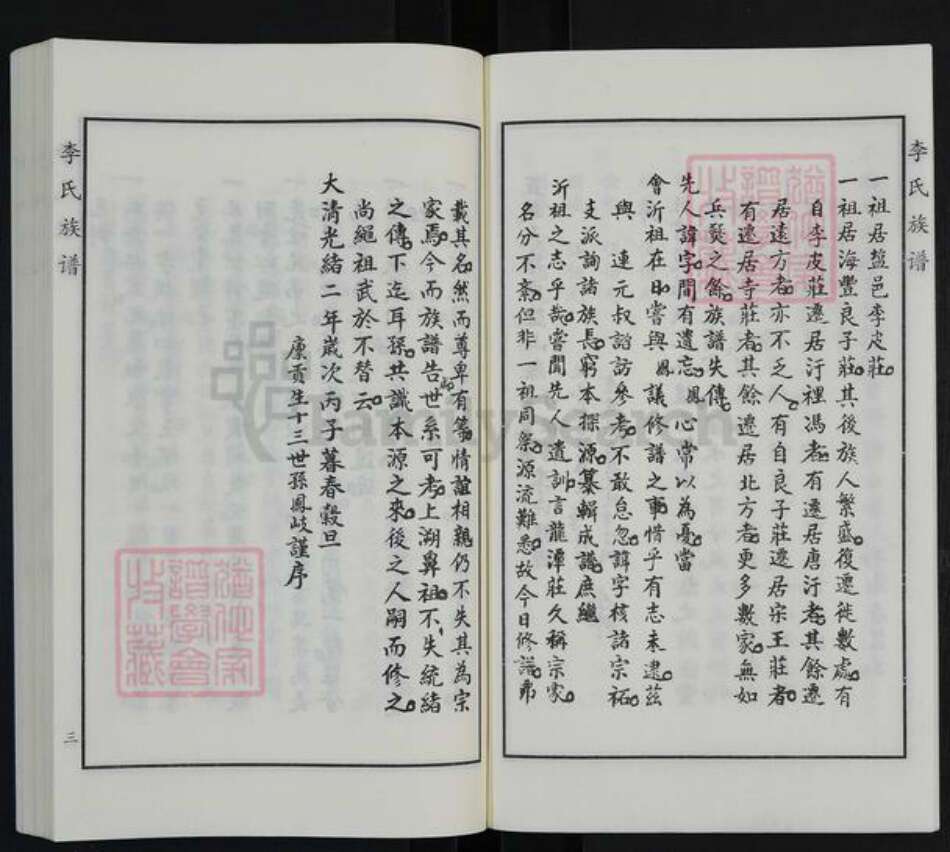 李氏族谱
一祖居盐邑李皮莊
一祖居海豐良子莊其後族人繁盛復遷徙數處有
自李皮莊遷居汙裡馮者有遷居唐汙者其餘遷
居遠方者亦不乏人有自良子莊遷居宋王莊者
有遷居寺莊者其餘遷居北方者更多數家無如
兵燹之餘族譜失傳
先人諱字間有遺忘鳳心常以為憂當
會沂祖在日嘗與鳳議修譜之事惜乎有志未逮茲
與連元叔諮訪參考不敢怠忽諱字核諸宗祏
支派詢諸族長窮本探源纂輯成譜庶繼
沂祖之志乎哉嘗聞先人遺訓言龍潭莊久稱宗家
名分不紊但非一祖同祭源流難悉故今日修譜弗
載其名然而尊卑有等情誼相親仍不失其為宗
家焉今而族譜告世系可考上溯鼻祖不失統緒
之傳下迄耳孫共識本源之來後之人嗣而修之
尚繩祖武於不替云
大清光緒二年歲次丙子暮春穀旦
廩貢生十三世孫鳳岐謹序
李氏族谱
三
FamilySearch